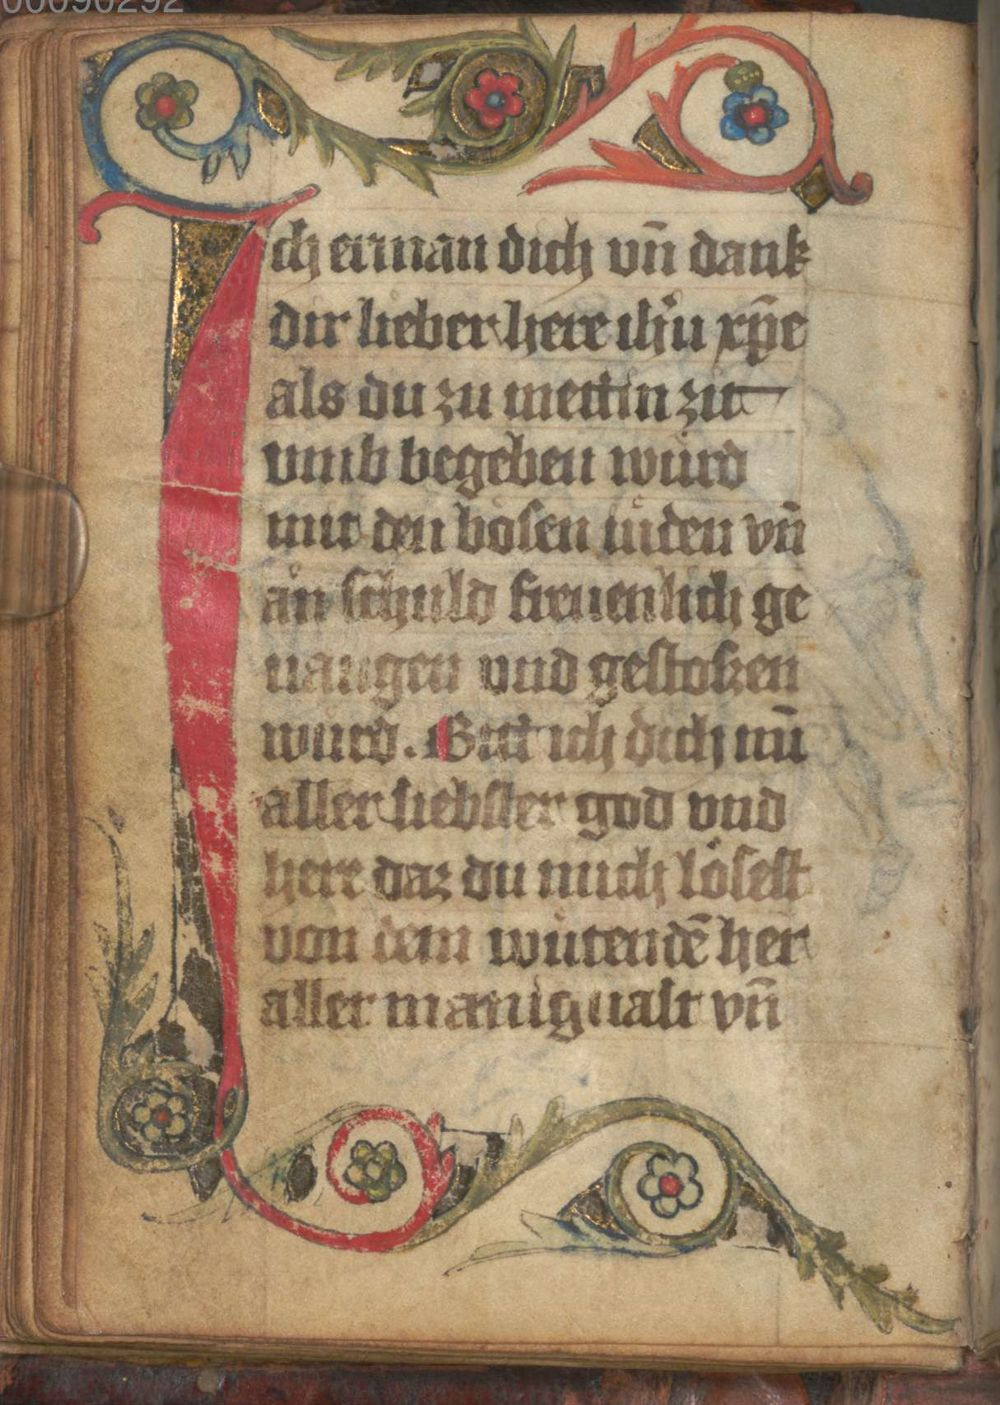 00090292
Ich erman dich vn̄ dank
dir lieber here ih̄u xp̄e
als du zu mettin zit
vmb begeben würd
mit den bösen iüden vn̄
ån schuld freuenlich ge
uangen vnd gestoßen
wurd. Bitt ich dich nū
aller liebster god vnd
here daz du mich lösest
von dem wütendē her
aller manigualt vn̄